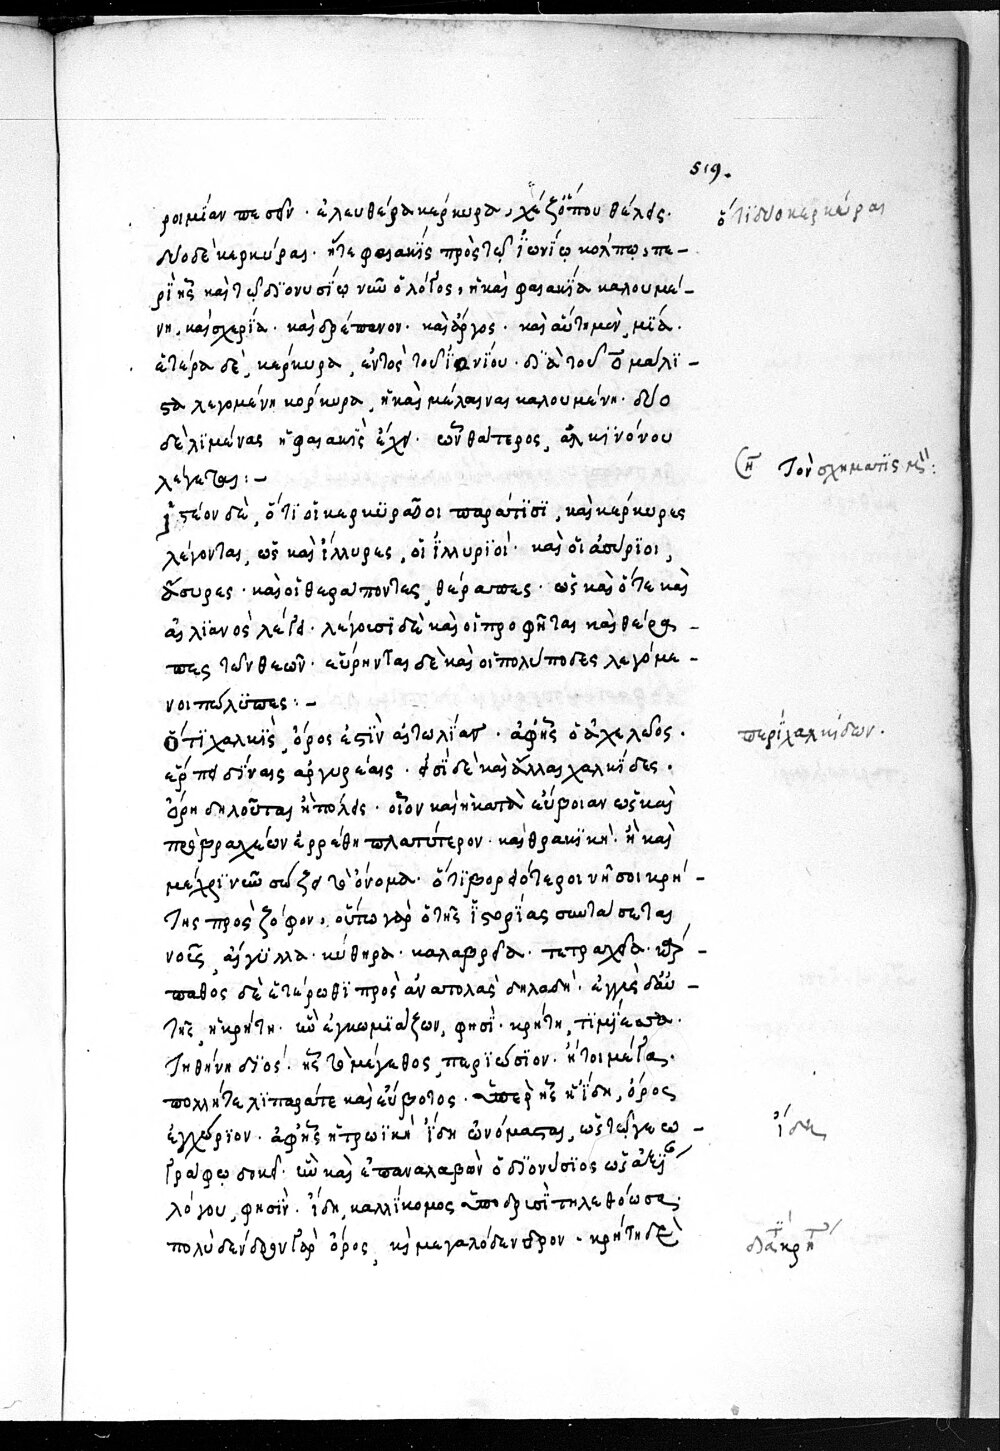 519.
ροιμίαν πεσεῖν· ἐλευθέρα κέρκυρα, χέζ' ὅπου θέλεις·
δύο δὲ κερκύραι· ἥτε φαιακὶς πρὸς τῷ ἰωνίῳ κόλπῳ, πε-
ρὶ ἧς καὶ τῷ διονυσίῳ νῦν ὁ λόγος, ἡ καὶ φαιακία καλουμέ-
νη, καὶ σχερία· καὶ δρέπανον· καὶ ἄργος· καὶ αὕτη μὲν, μία·
ἑτέρα δὲ, κέρκυρα, ἐντὸς τοῦ ἰονίου· διὰ τοῦ ο μάλι-
στα λεγομένη κορκυρα, ἡ καὶ μέλαινα καλουμένη· δύο
δὲ λιμένας ἡ φαιακὶς ἔχει· ὧν θάτερος, ἀλκινόου
λέγεται:-
ἰστέον δὲ, ὅτι οἱ κερκυραῖοι παρά τισι, καὶ κέρκυρες
λέγονται, ὡς καὶ ἴλλυρες, οἱ ἰλλυριοί· καὶ οἱ ἀσύριοι,
ἄσυρες· καὶ οἱ θεράποντες, θέραπες· ὡς καὶ ὅ τε καὶ
αἰλιανὸς λέγει· λέγουσι δὲ καὶ οἱ προφῆται καὶ θέρα-
πες τῶν θεῶν· εὕρηνται δὲ καὶ οἱ πολύποδες λεγόμε-
νοι πώλυπες:-
ὅτι χαλκὶς, ὄρος ἐστὶν αἰτωλίας· ἀφ' ἧς ὁ ἀχελῷος·
ἕρπει δίναις ἀργυρέαις· εἰσὶ δὲ καὶ ἄλλαι χαλκίδες·
ὄρη δηλοῦσαι ἢ πόλεις· οἷον καὶ ἡ κατὰ εὔβοιαν ὡς καὶ
πρὸ βραχέων ἐρρέθη πλατύτερον· καὶ θρακικὴ· ἣ καὶ
μέχρι νῦν σώζει τὸ ὄνομα· ὅτι βορειότεροι νῆσοι κρή-
της πρὸς ζόφον, οὕπω γὰρ ὁ τῆς ἱστορίας
νοῦς, αἴγυλλα· κύθηρα· καλαβρεία· τετραχεία· κάρ-
παθος δὲ ἑτέρωθι πρὸς ἀνατολὰς δηλαδή· ἐγγὺς δ' αὐ-
τῆς, ἡ κρήτη· ἣν ἐγκωμιάζων, φησὶ· κρήτη, τιμήεσσα·
τιθήνη διός· ἧς τὸ μέγεθος, περιώσιον· ἤτοι μέγα·
πολλή τε λιπαρά τε καὶ εὔβοτος· ὑπὲρ ἧς ἡ ἴδη, ὄρος
ἐγχώριον· ἀφ' ἧς ἡ τρωϊκὴ ἴδη ὠνόμασται, ὡς τῷ γεω-
γράφῳ δοκεῖ· ἣν καὶ ἐπαναλαβὼν ὁ διονύσιος
λόγου, φησὶν· ἴδη, καλλίκομος ὑπὸ δρυσὶ τηλεθόωσα·
πολύδενδρον γὰρ ὄρος, καὶ μεγαλόδενδρον· κρήτη δὲ
ὅτι δύο κερκύραι
τὸν σχηματισμόν:
περὶ χαλκίδων·
ἴδη